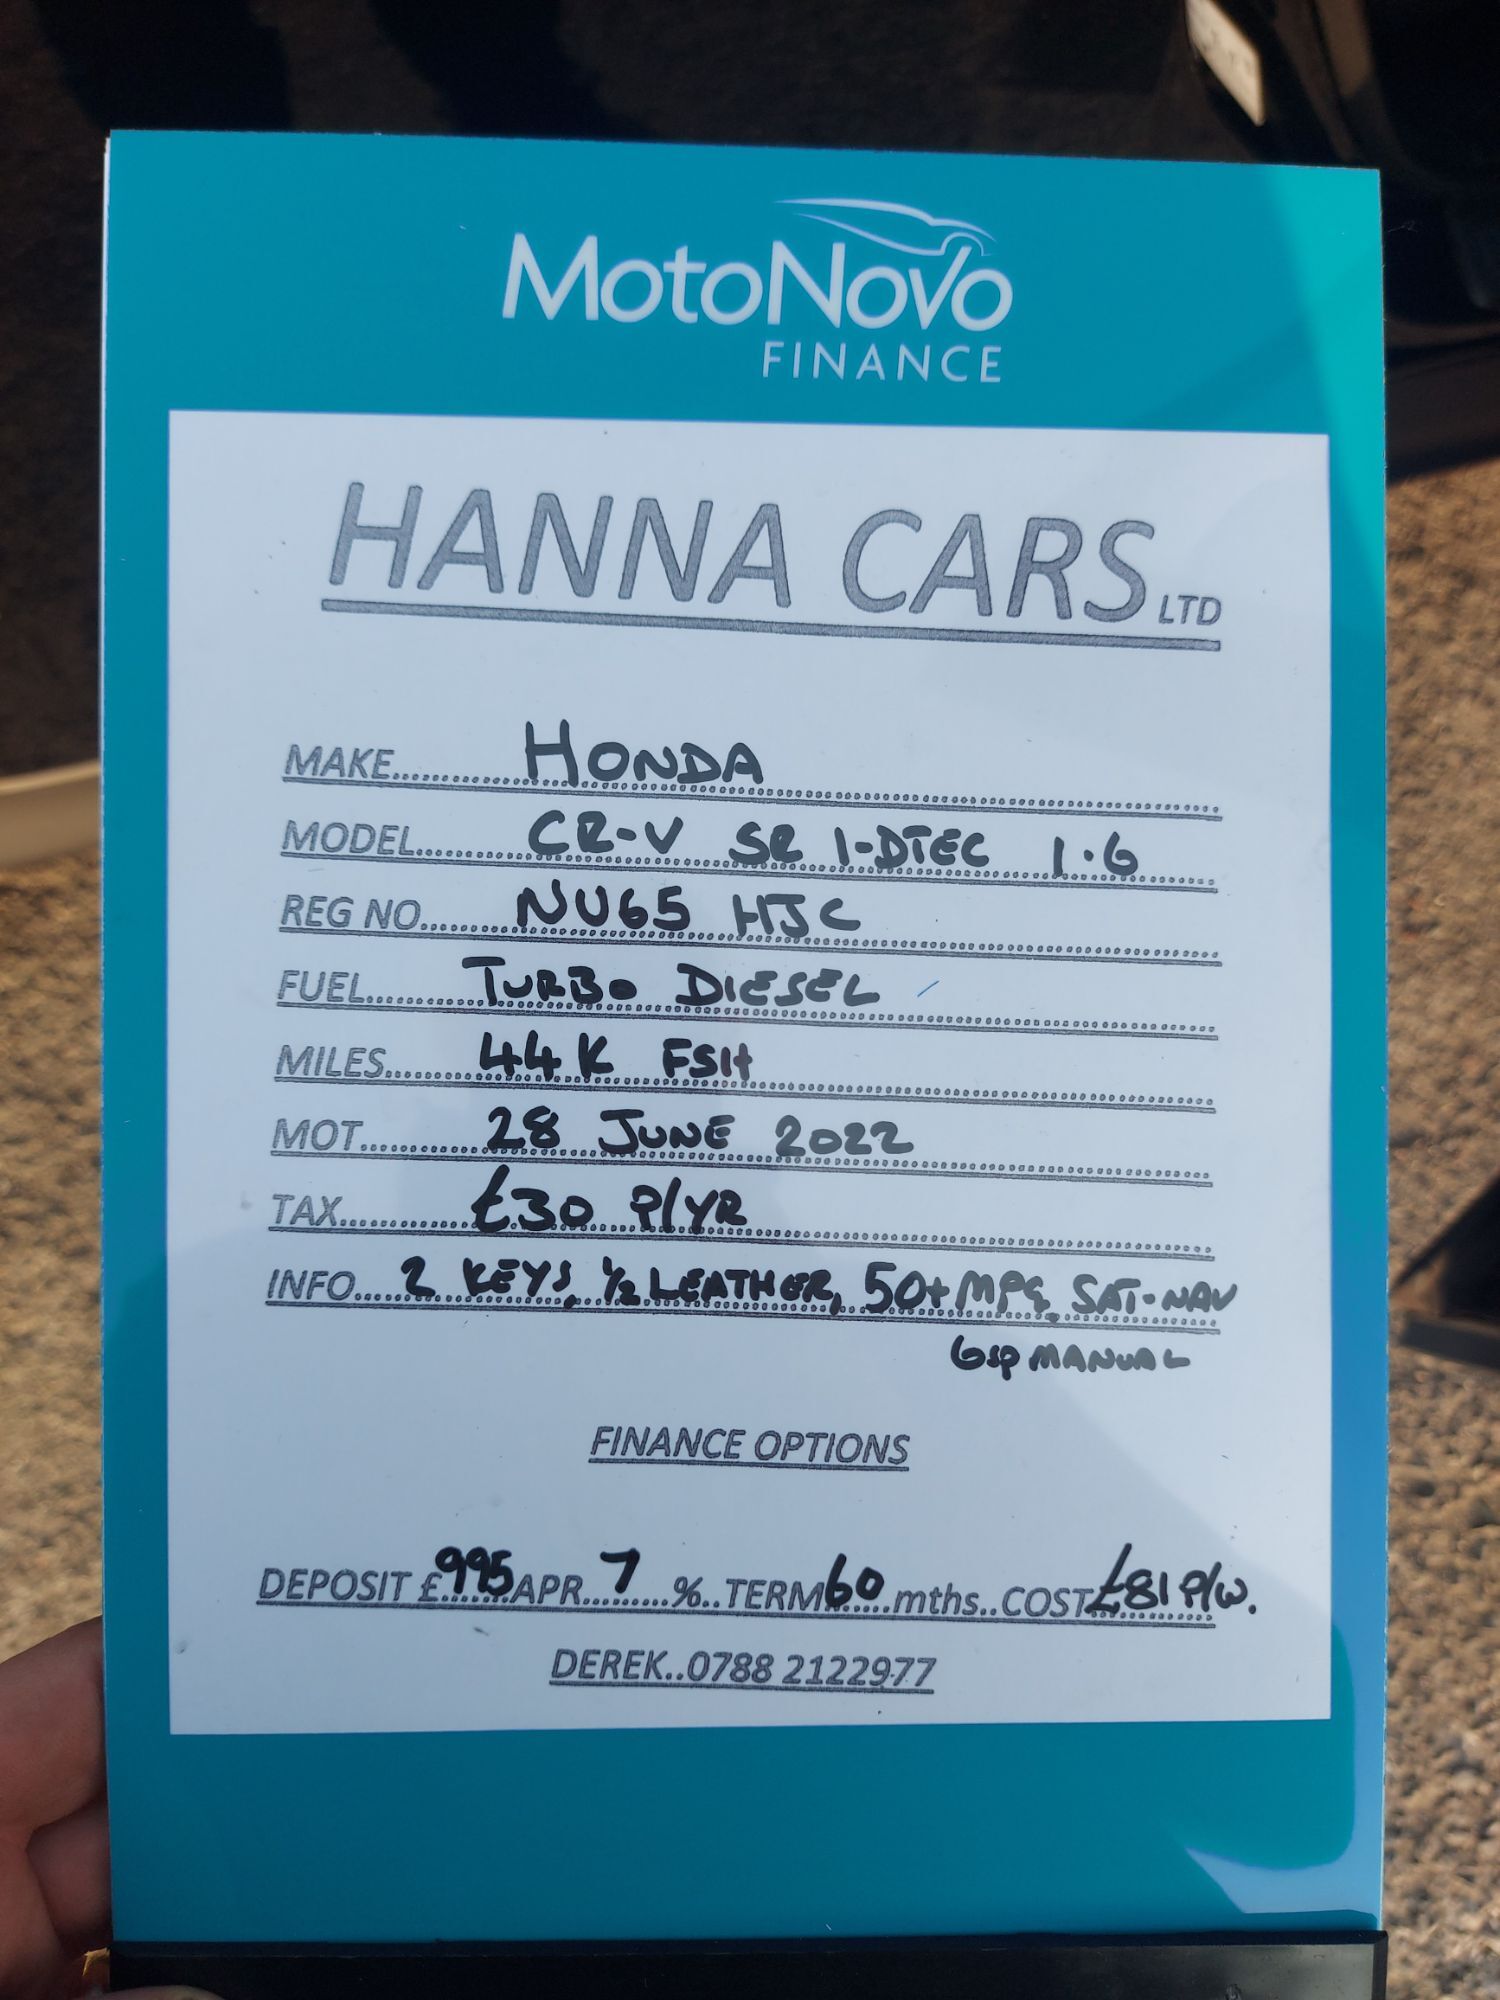 MOTONOVO
FINANCE
HANNA CARS LTD
MAKE.......HONDA
MODEL.......CR-V SR I-DTEC 1.6
REG NO.......NU65 HJC
FUEL.......TURBO DIESEL
MILES.......44K FSH
MOT.......28 JUNE 2022
TAX.......£30 P/YR
INFO....2 KEYS, ½ LEATHER, 50+MPG, SAT-NAV
6SP MANUAL
FINANCE OPTIONS
DEPOSIT £995 APR...7...%..TERM 60 mths..COST £81 P/W.
DEREK..0788 2122977